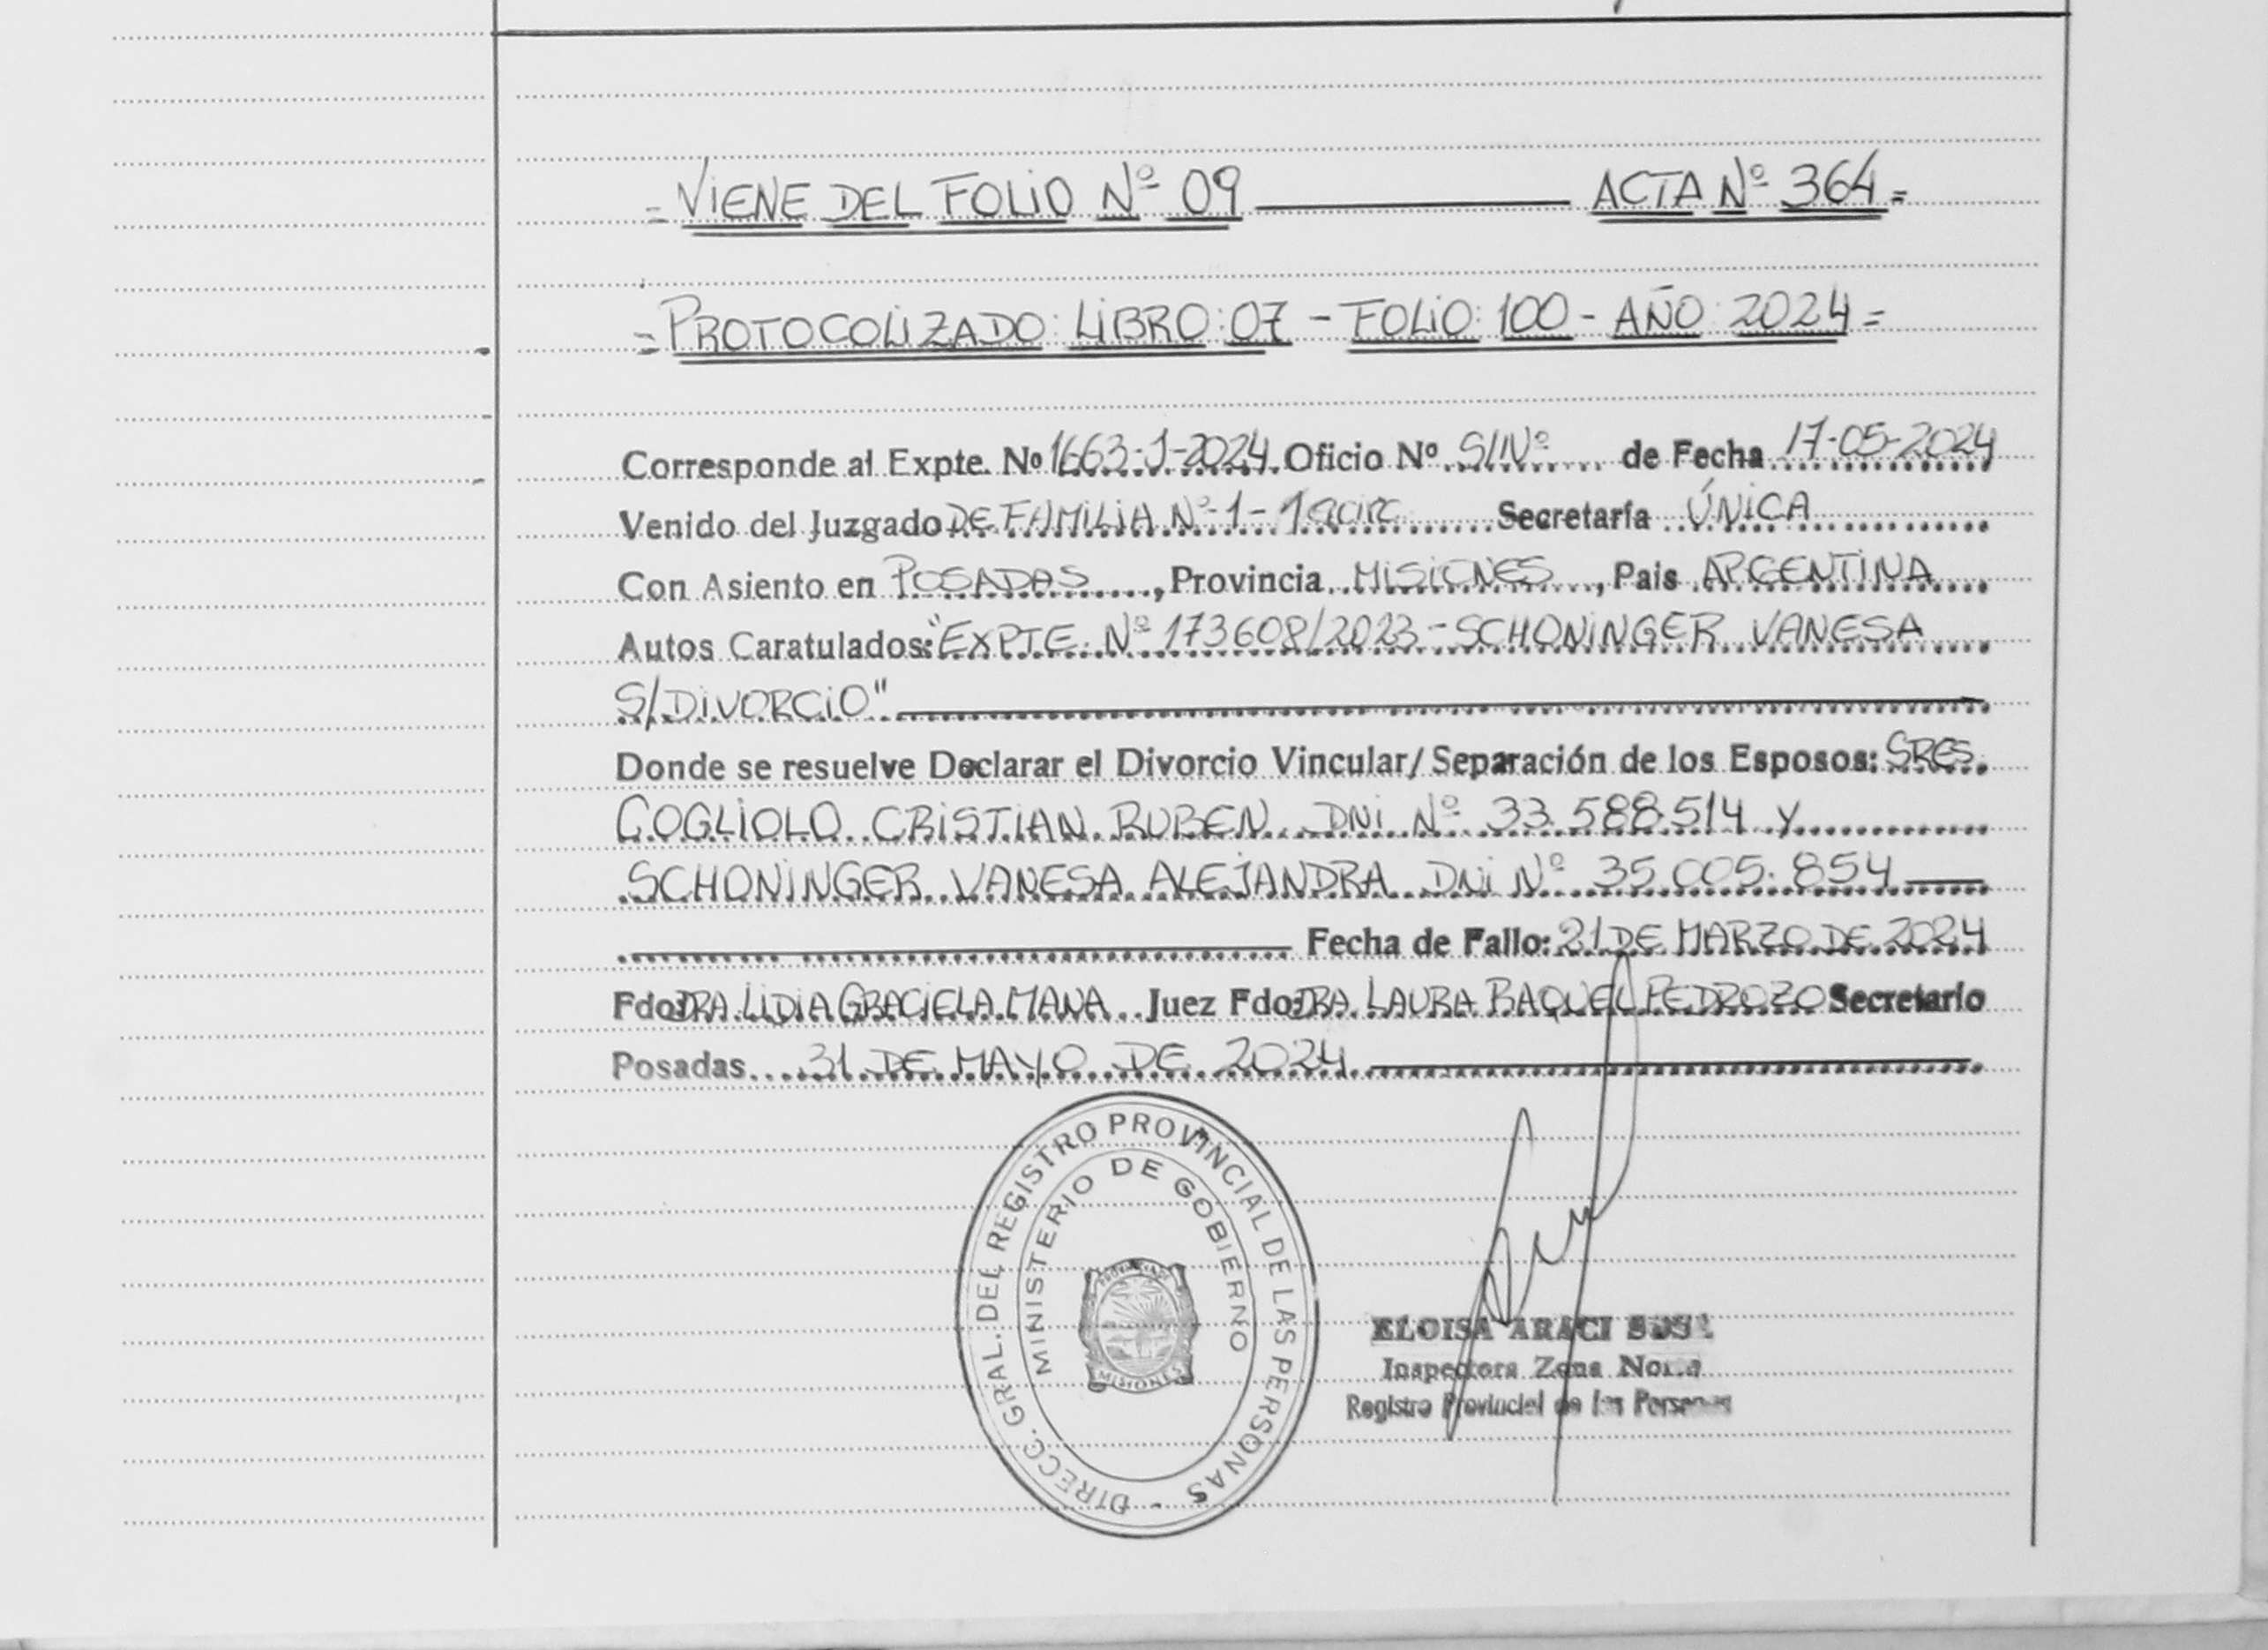 = VIENE DEL FOLIO Nº 09 ACTA Nº 364 =
= PROTOCOLIZADO: LIBRO: 07 - FOLIO: 100 - AÑO: 2024 =
Corresponde al Expte. Nº 1663-J-2024 Oficio Nº S/Nº de Fecha 17-05-2024
Venido del Juzgado DE FAMILIA Nº 1 - 1ª Secretaría ÚNICA
Con Asiento en POSADAS, Provincia MISIONES, Pais ARGENTINA
Autos Caratulados: "EXPTE Nº 173608/2023 - SCHONINGER VANESA
S/DIVORCIO"
Donde se resuelve Declarar el Divorcio Vincular/ Separación de los Esposos: SRES.
COGLIOLO CRISTIAN RUBEN DNI Nº 33.588.514 Y
SCHONINGER VANESA ALEJANDRA DNI Nº 35.005.854
Fecha de Fallo: 21 DE MARZO DE 2024
Fdo: DRA. LIDIA GRACIELA MANA Juez Fdo: DRA. LAURA RAQUEL PEDROZO Secretario
Posadas 31 DE MAYO DE 2024
DIRECC. GRAL. DEL REGISTRO PROVINCIAL DE LAS PERSONAS -
MINISTERIO DE GOBIERNO
PROVINCIA DE
MISIONES
ELOISA ARACI SOSA
Inspectora Zona Norte
Registro Provincial de las Personas